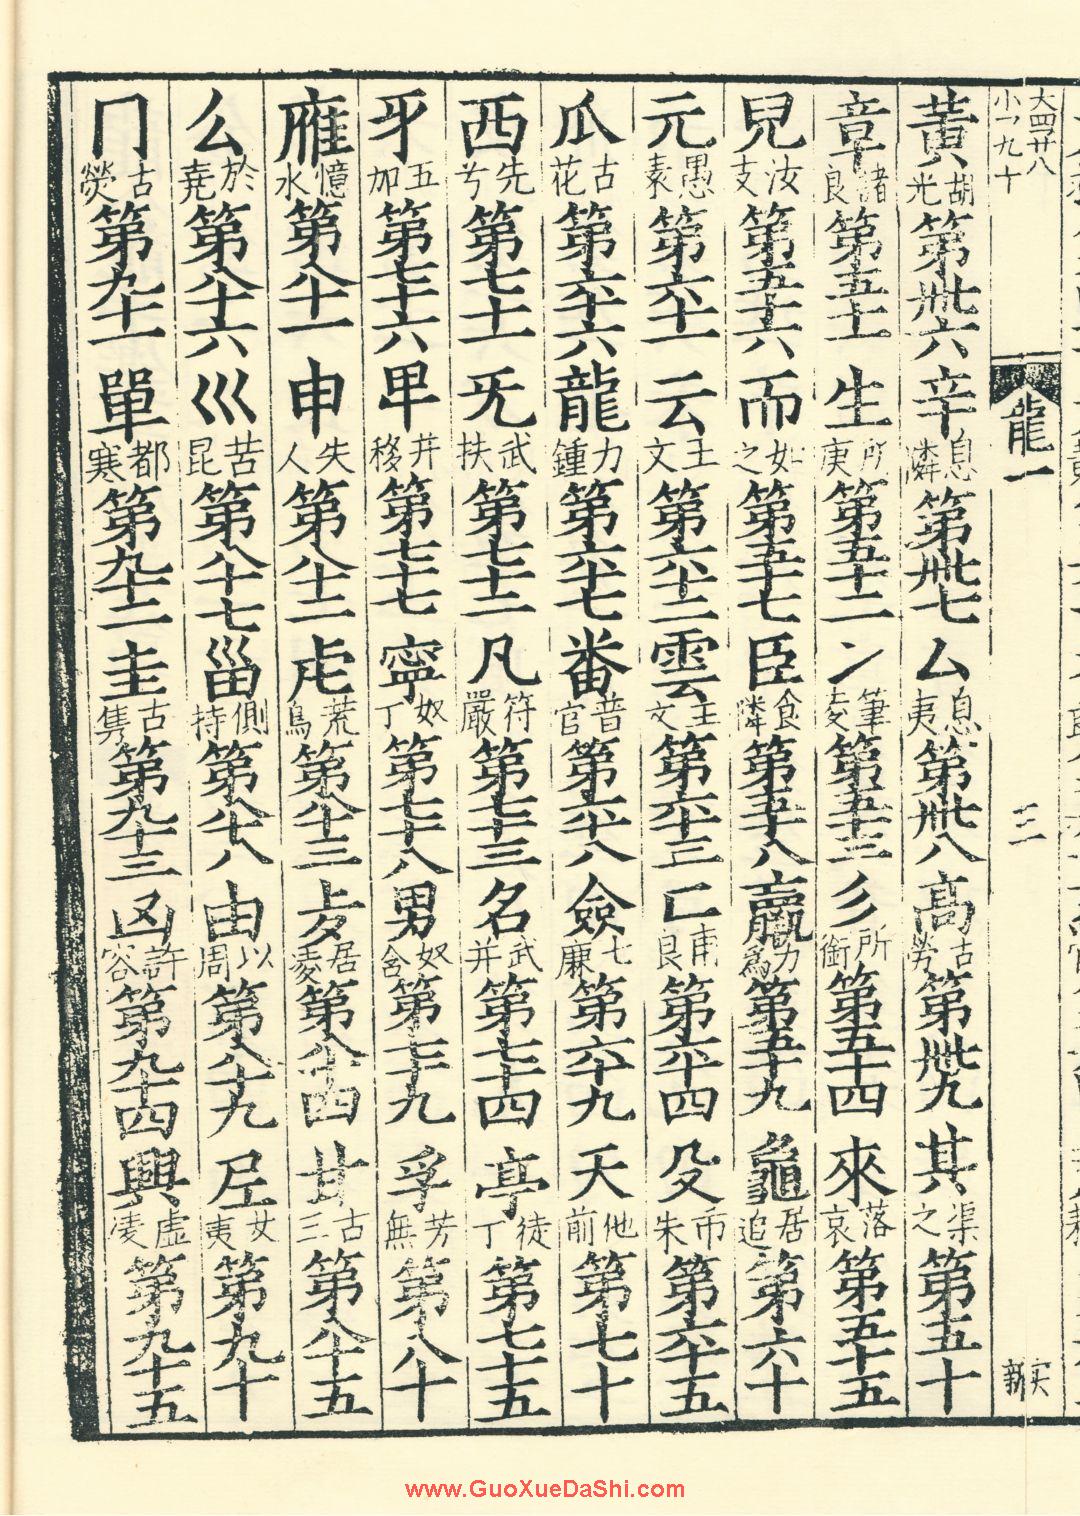 大四廿八
小一九十
龍一
三
黃胡光第卌六辛息隣第卌七厶息夷第卌八高古勞第卌九其渠之第五十
章諸良第五十一生所庚第五十二冫筆夌第五十三彡所銜第五十四來落哀第五十五
兒汝支第五十六而如之第五十七臣食隣第五十八羸力為第五十九龜居追第六十
元愚袁第六十一云王文第六十二雲王文第六十三亡甫良第六十四殳市朱第六十五
瓜古花第六十六龍力鍾第六十七番普官第六十八僉七廉第六十九天他前第七十
西先兮第七十一旡武扶第七十二凡符嚴第七十三名武并第七十四亭徒丁第七十五
牙五加第七十六卑井移第七十七寧奴丁第七十八男奴含第七十九孚芳無第八十
䧹憶水第八十一申失人第八十二虍荒烏第八十三居夌第八十四甘古三第八十五
么於堯第八十六巛苦昆第八十七甾側持第八十八由以周第八十九𡰥女夷第九十
冂古熒第九十一單都寒第九十二圭古携第九十三凶許容第九十四興虛凌第九十五
www.GuoXueDaShi.com